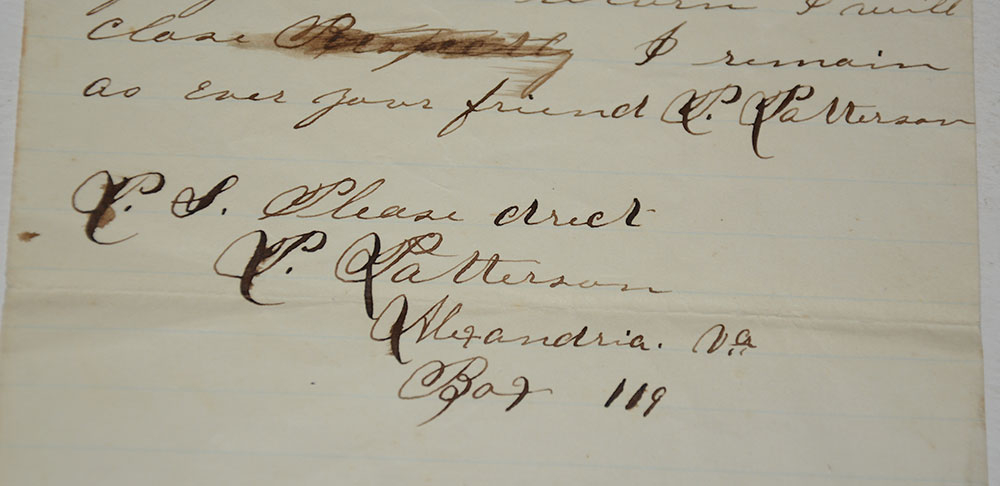 return I will
close I remain
as ever your friend P. Patterson
P. S. Please drect
P. Patterson
Alexandria. Va
Box 119